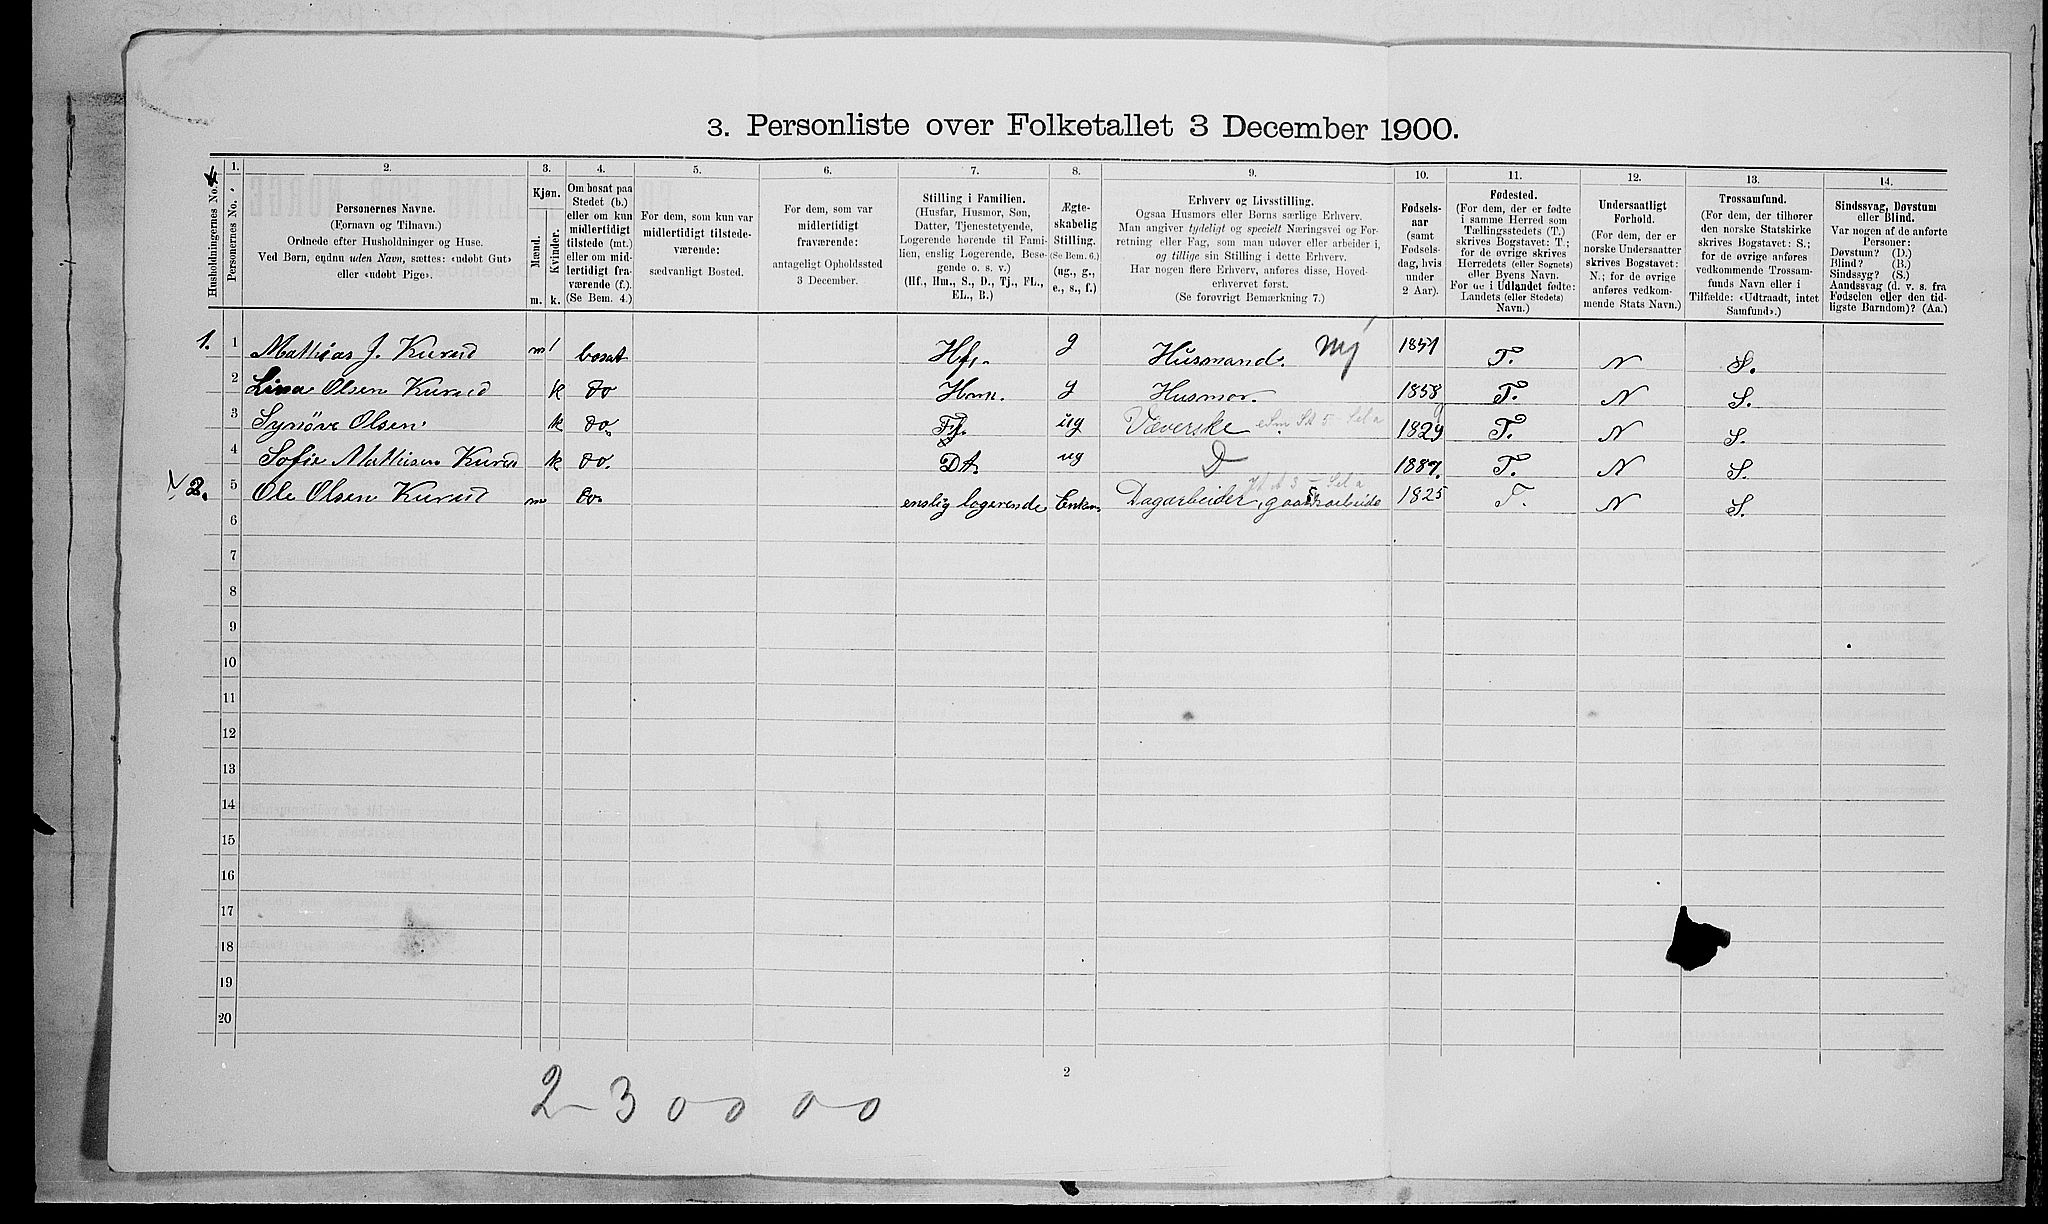 3. Personliste over Folketallet 3 December 1900.
Husholdningernes No.
1.
Personernes No.
2.
Personernes Navne.
(Fornavn og Tilnavn.)
Ordnede efter Husholdninger og Huse.
Ved Børn, endnu uden Navn, sættes: «udøbt Gut»
eller «udøbt Pige».
3.
Kjøn.
Mænd.
Kvinder.
m.
k.
4.
Om bosat paa
Stedet (b.)
eller om kun
midlertidigt
tilstede (mt.)
eller om mid-
lertidigt fra-
værende (f.).
(Se Bem. 4.)
5.
For dem, som kun var
midlertidigt tilstede-
værende:
sædvanligt Bosted.
6.
For dem, som var
midlertidigt
fraværende:
antageligt Opholdssted
3 December.
7.
Stilling i Familien.
(Husfar, Husmor, Søn,
Datter, Tjenestetyende,
Logerende hørende til Fami-
lien, enslig Logerende, Besø-
gende o. s. v.)
(Hf., Hm., S., D., Tj., FL.,
EL., B.)
8.
Ægte-
skabelig
Stilling.
(Se Bem. 6.)
(ug., g.,
e., s., f.)
9.
Erhverv og Livsstilling.
Ogsaa Husmors eller Børns særlige Erhverv.
Man angiver tydeligt og specielt Næringsvei og For-
retning eller Fag, som man udøver eller arbeider i,
og tillige sin Stilling i dette Erhverv.
Har nogen flere Erhverv, anføres disse, Hoved-
erhvervet først.
(Se forøvrigt Bemærkning 7.)
10.
Fødsels-
aar
(samt
Fødsels-
dag, hvis
under
2 Aar).
11.
Fødested.
(For dem, der er fødte
i samme Herred som
Tællingsstedets (T.)
skrives Bogstavet: T.;
for de øvrige skrives
Herredets (eller Sognets)
eller Byens Navn.
For de i Udlandet fødte:
Landets (eller Stedets)
Navn.)
12.
Undersaatligt
Forhold.
(For dem, der er
norske Undersaatter
skrives Bogstavet:
N.; for de øvrige
anføres vedkom-
mende Stats Navn.)
13.
Trossamfund.
(For dem, der tilhører
den norske Statskirke
skrives Bogstavet: S.;
for de øvrige anføres
vedkommende Trossam-
funds Navn eller i
Tilfælde: «Udtraadt, intet
Samfund».)
14.
Sindssvag, Døvstum
eller Blind.
Var nogen af de anførte
Personer:
Døvstum? (D.)
Blind? (B.)
Sindssyg? (S.)
Aandssvag (d. v. s. fra
Fødselen eller den tid-
ligste Barndom)? (Aa.)
1. 1 Mathias J. Kurud m bosat Hf. g Husmand. 18 T. N S.
2 Lina Olsen Kurud k do Hm. g Husmor. 1858 T. N S.
3 Synöve Olsen. k do. ug Væverske 1829 T. N S.
4 Sofie Mathisen Kurud k do. Dt. ug D 1887. T. N S.
2. 5 Ole Olsen Kurud m do. enslig logerende Enkem. Dagarbeider, gaardsarbeide 1825 T. N S.
6
7
8
9
10
11
12
13
14
15
16
17
18
19
20
2
2 – 3 0 0 0 0